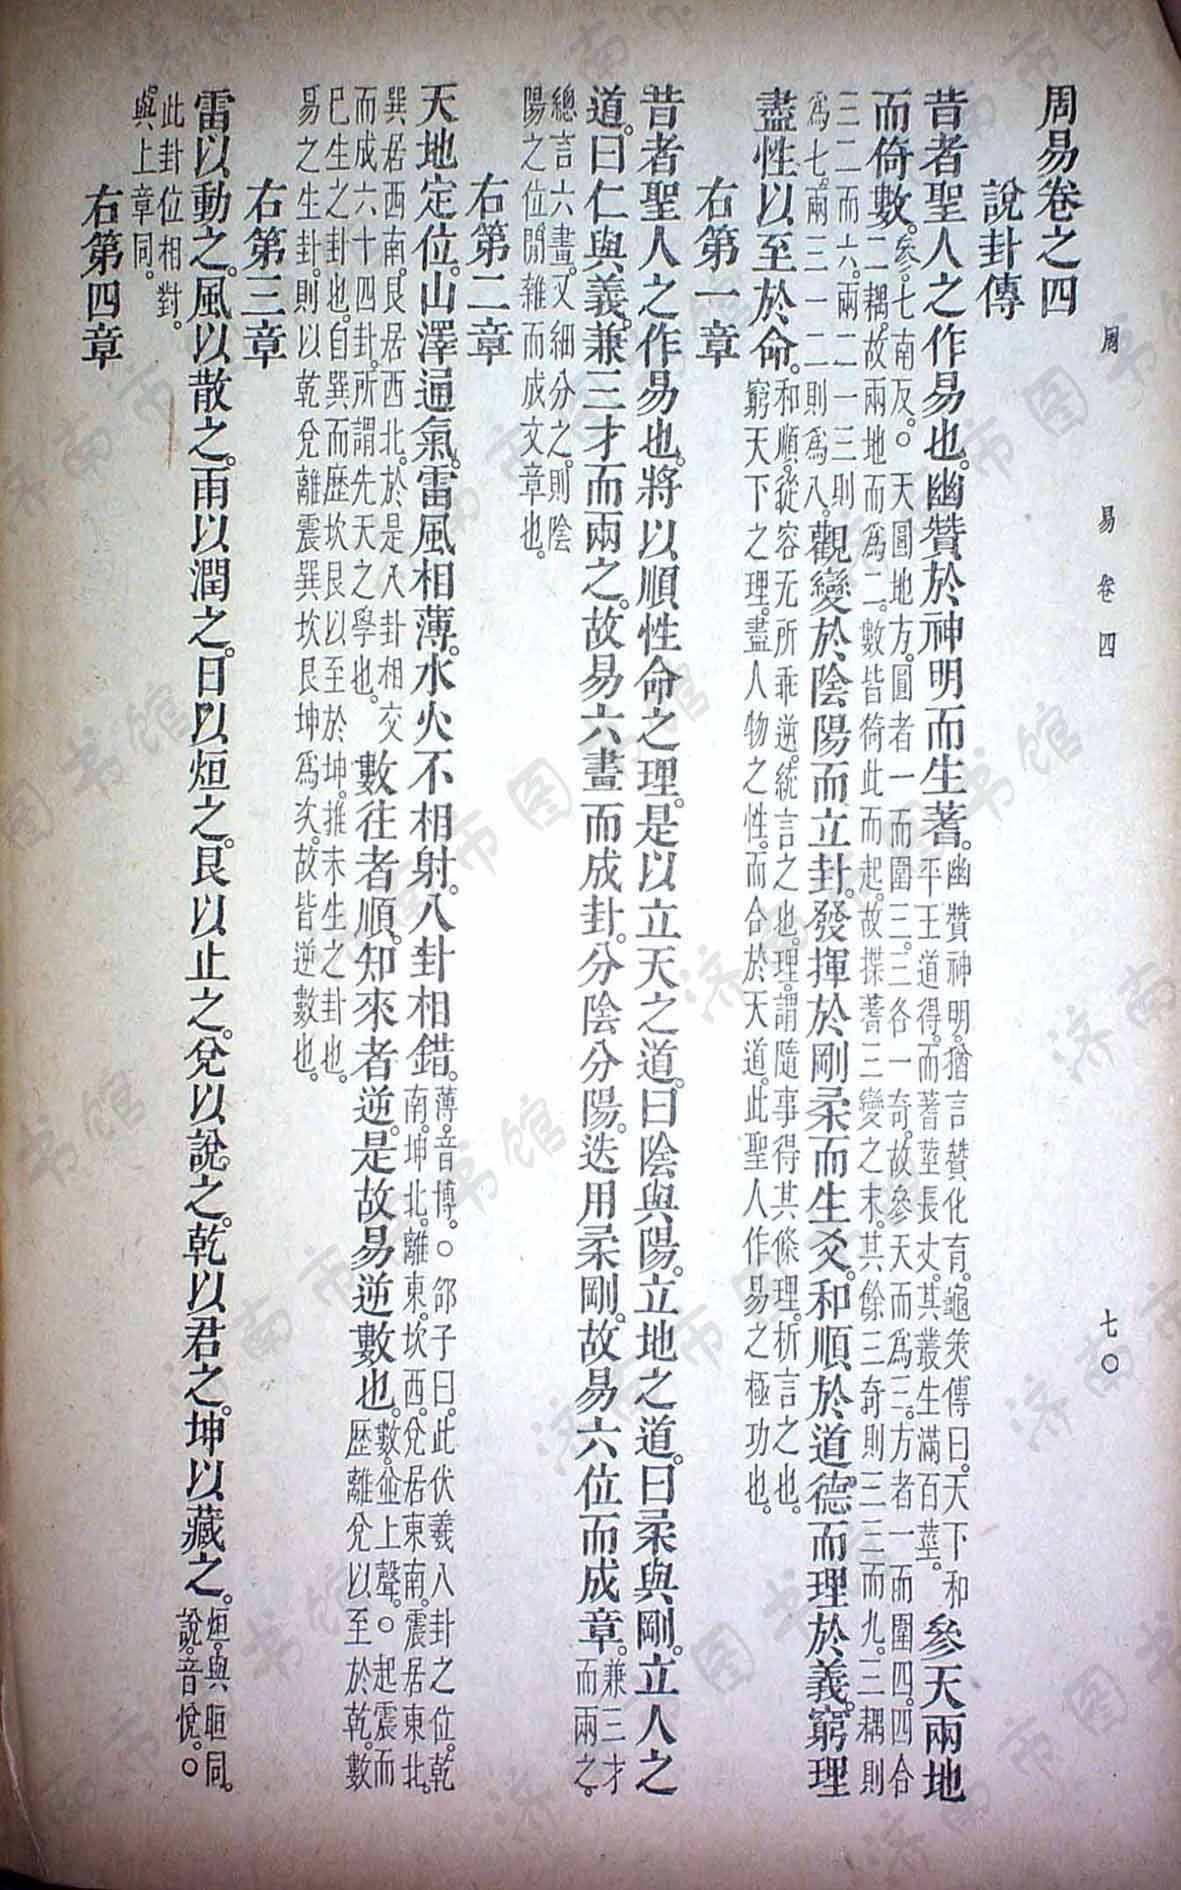 周易卷之四
說卦傳
昔者聖人之作易也。幽贊於神明而生蓍。
幽贊神明。猶言贊化育。龜筴傳曰。天下和
平。王道得。而蓍莖長丈。其叢生滿百莖。
參天兩地
而倚數。
參。七南反。○天圓地方。圓者一而圍三。三各一奇。故參天而爲三。方者一而圍四。四合
二耦。故兩地而爲二。數皆倚此而起。故揲蓍三變之末。其餘三奇則三三而九。三耦則
三二而六。兩二一三則
爲七。兩三一二則爲八。
觀變於陰陽而立卦。發揮於剛柔而生爻。和順於道德而理於義。窮理
盡性以至於命。
和順。從容无所乖逆。統言之也。理。謂隨事得其條理。析言之也。
窮天下之理。盡人物之性。而合於天道。此聖人作易之極功也。
右第一章
昔者聖人之作易也。將以順性命之理。是以立天之道。曰陰與陽。立地之道。曰柔與剛。立人之
道。曰仁與義。兼三才而兩之。故易六畫而成卦。分陰分陽。迭用柔剛。故易六位而成章。
兼三才
而兩之。
總言六畫。又細分之。則陰
陽之位。間雜而成文章也。
右第二章
天地定位。山澤通氣。雷風相薄。水火不相射。八卦相錯。
薄。音博。○邵子曰。此伏羲八卦之位。乾
南。坤北。離東。坎西。兌居東南。震居東北。
巽居西南。艮居西北。於是八卦相交
而成六十四卦。所謂先天之學也。
數往者順。知來者逆。是故易逆數也。
數。並上聲。○起震而
歷離兌以至於乾。數
已生之卦也。自巽而歷坎艮以至於坤。推未生之卦也。
易之生卦。則以乾兌離震巽坎艮坤爲次。故皆逆數也。
右第三章
雷以動之。風以散之。雨以潤之。日以烜之。艮以止之。兌以說之。乾以君之。坤以藏之。
烜。與晅同。
說。音悅。○
此卦位相對。
與上章同。
右第四章
周
易
卷
四
七○
济南市图书馆